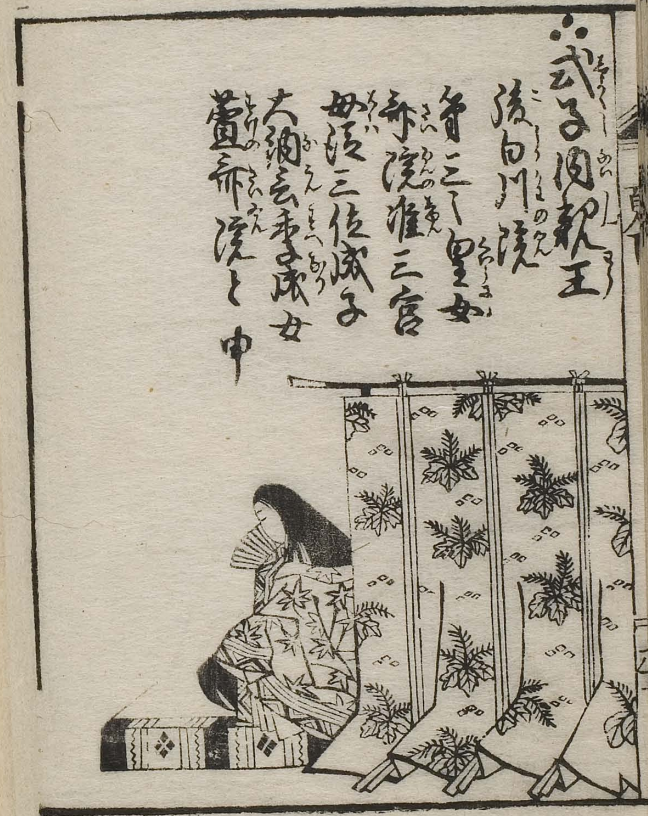 ∴式子内親王
後白川院
第三之皇女
斎院准三宮
母従三位成子
大納言季成女
萱斎院と申